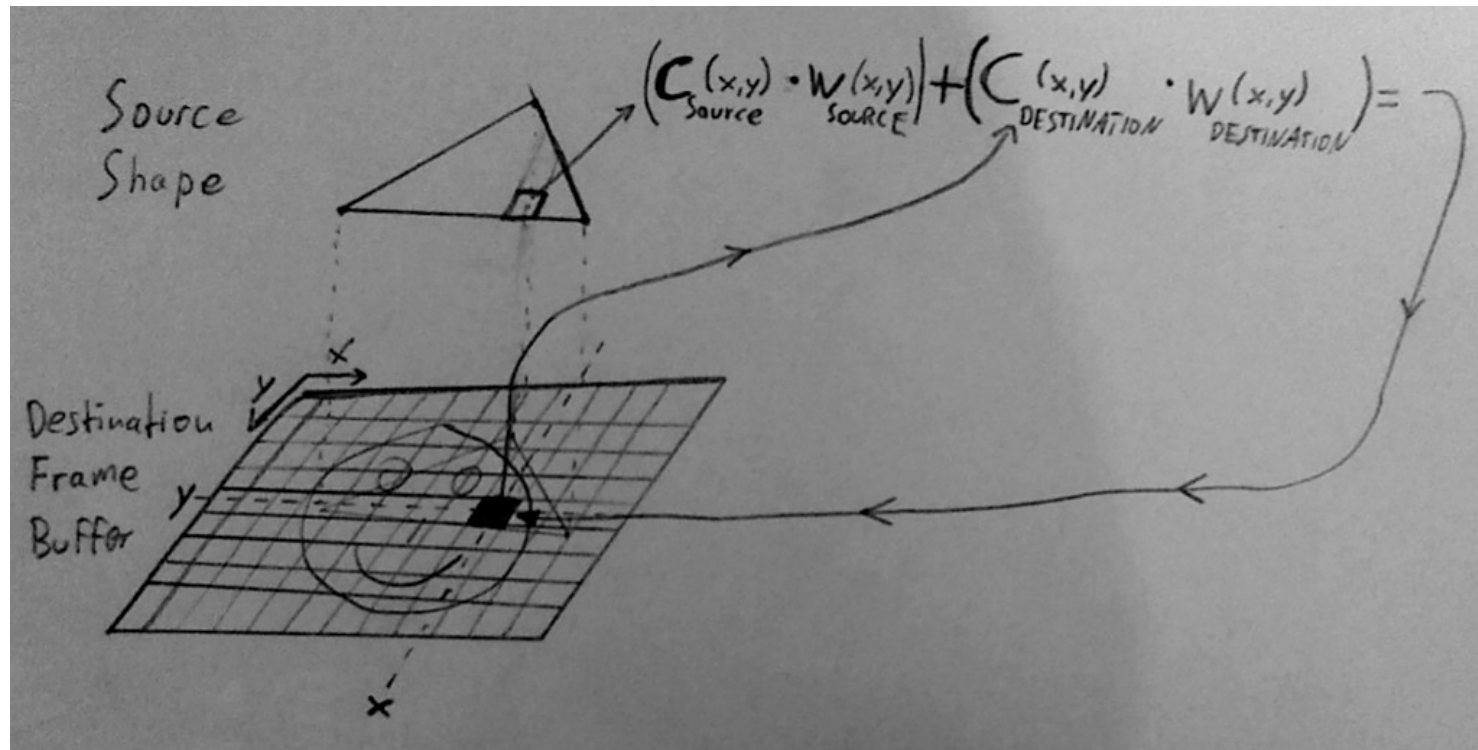 Source
Shape
(C(x,y) · W(x,y)) + (C(x,y) · W(x,y)) =
Source SOURCE DESTINATION DESTINATION
x
y
Destination
Frame
Buffer
y
x